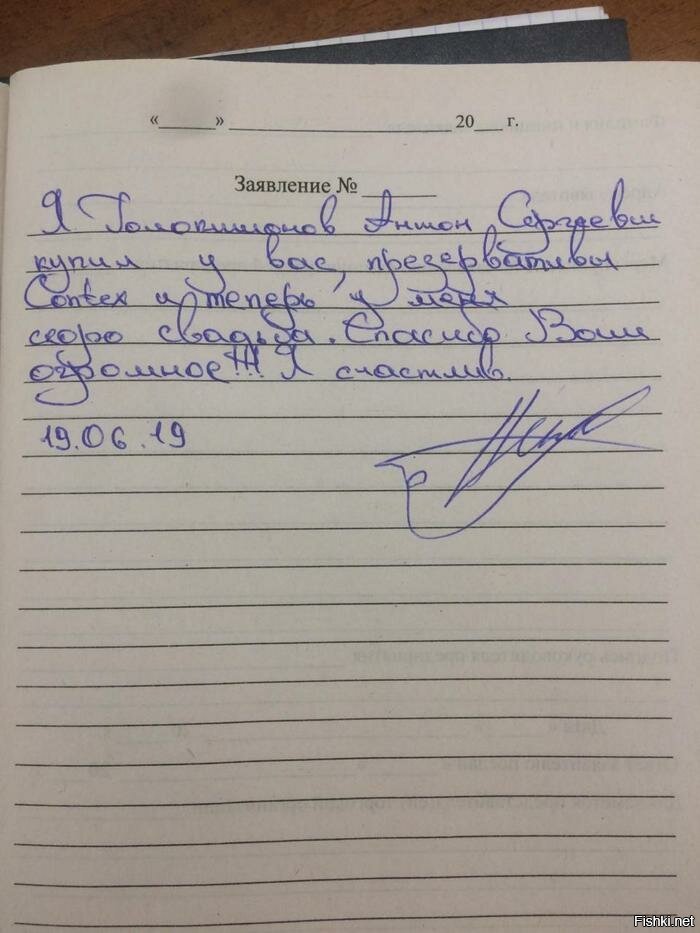 «______» ______________________ 20___ г.
Заявление № _______
Я Антон Сергеевич
купил у вас, презервативы
Contex и теперь у меня
скоро свадьба. Спасибо Вам
огромное!!! Я счастлив.
19.06.19
Fishki.net